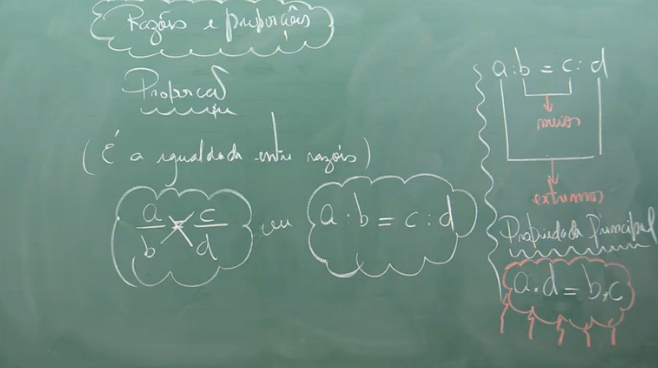 Razões e proporções
Proporção
(É a igualdade entre razões)
a/b = c/d ou a : b = c : d
a : b = c : d
meios
extremos
Propriedade Principal
a . d = b . c